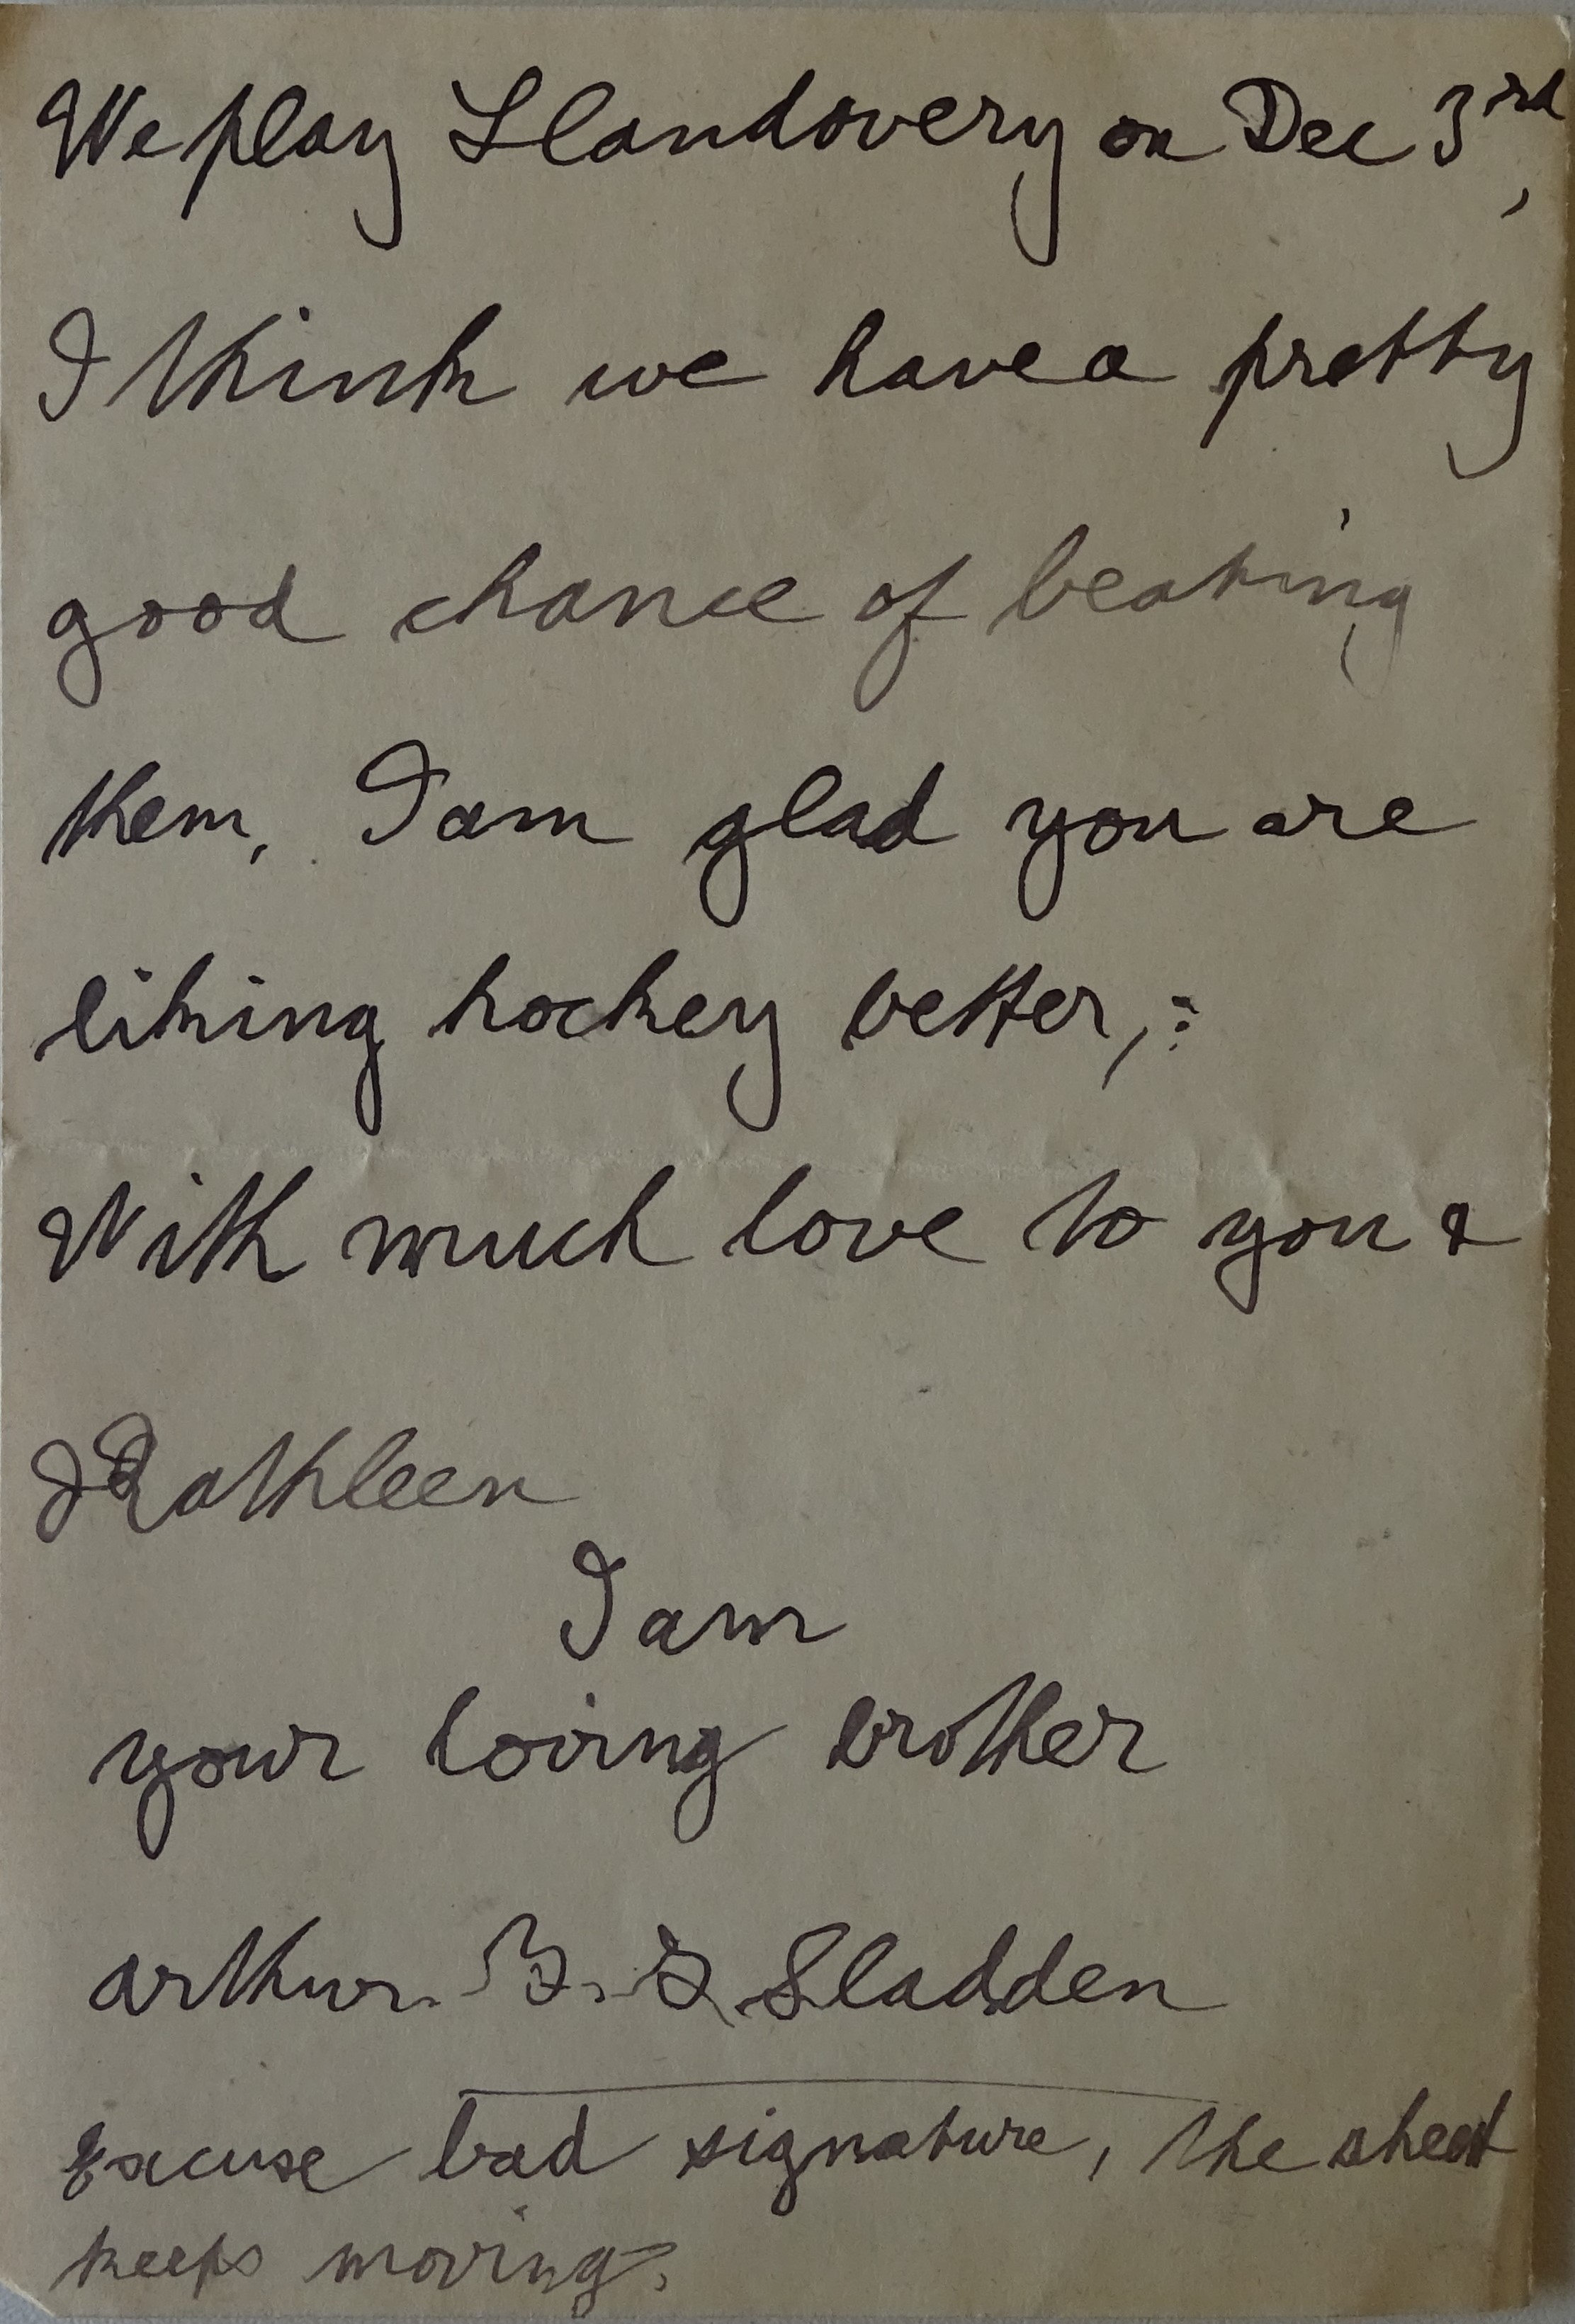 We play Llandovery on Dec 3rd,
I think we have a pretty
good chance of beating
them, I am glad you are
liking hockey better,:
With much love to you &
Kathleen
I am
your loving brother
Arthur. B. Sladden
Excuse bad signature, the sheet
keeps moving.